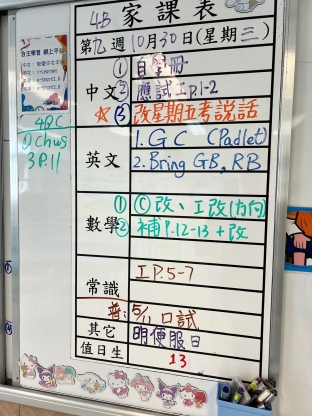 4B 家課表
第九週 10月30日(星期三)
中文
① 自學冊
② 應試工P.1-2
☆③ 改星期五考說話
英文
1. GC (Padlet)
2. Bring GB, RB
數學
① Ⓒ改、工改(方向)
② 補P.12-13+改
常識
工P.5-7
普: 5/11 口試
其它 明便服日
值日生 13
自主學習 網上平台
49C
① Chws
3 P.11